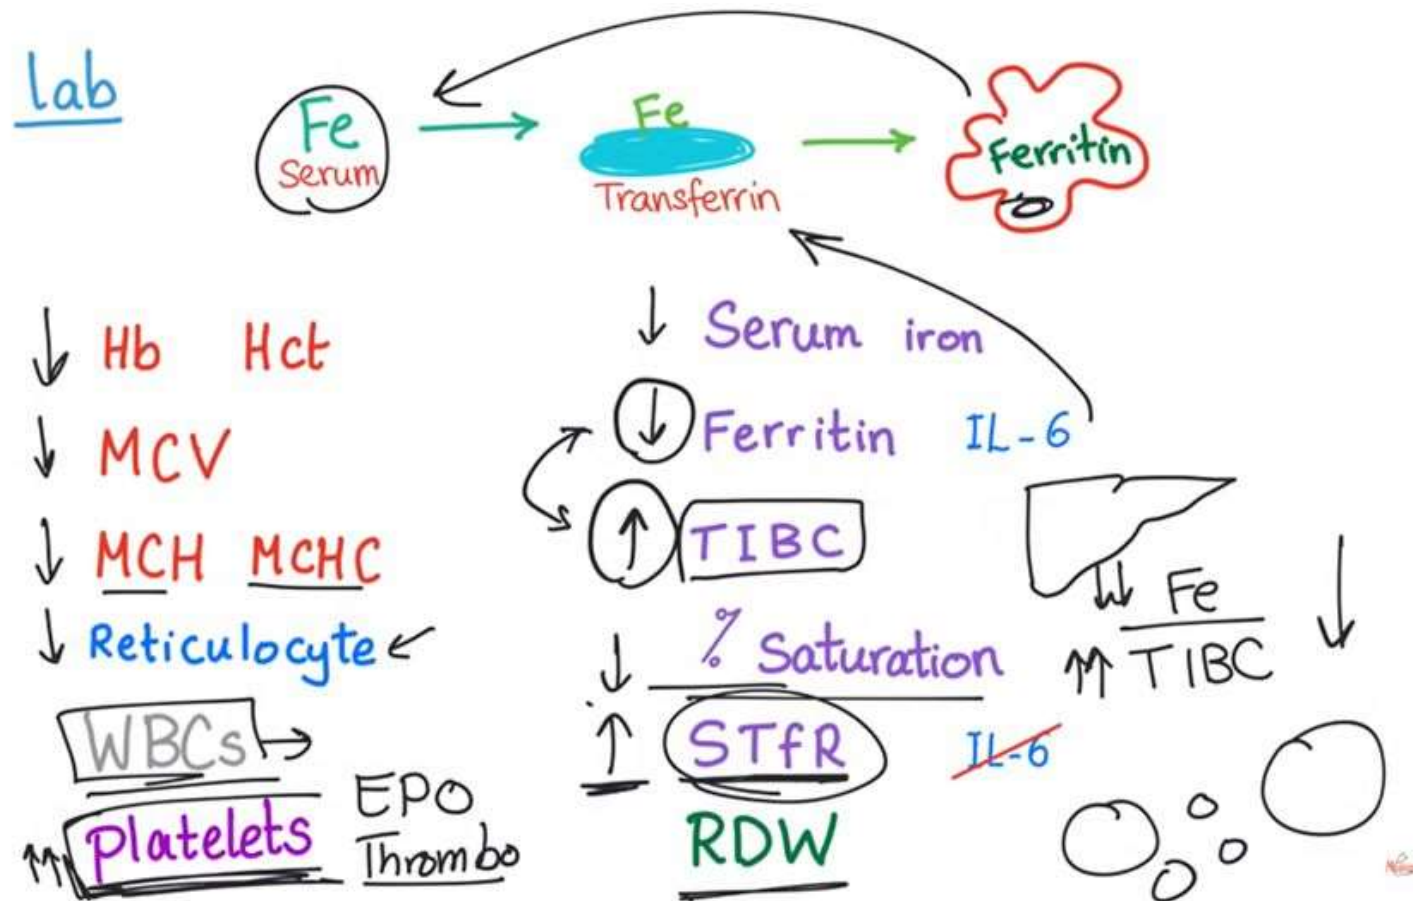 lab
Fe
Serum
Fe
Transferrin
Ferritin
↓ Hb Hct
↓ MCV
↓ MCH MCHC
↓ Reticulocyte ←
WBCs →
↑↑ Platelets
EPO
Thrombo
↓ Serum iron
↓ Ferritin IL-6
↑ TIBC
↓ % Saturation
↑ STfR IL-6
RDW
↓↓ Fe
↑↑ TIBC ↓